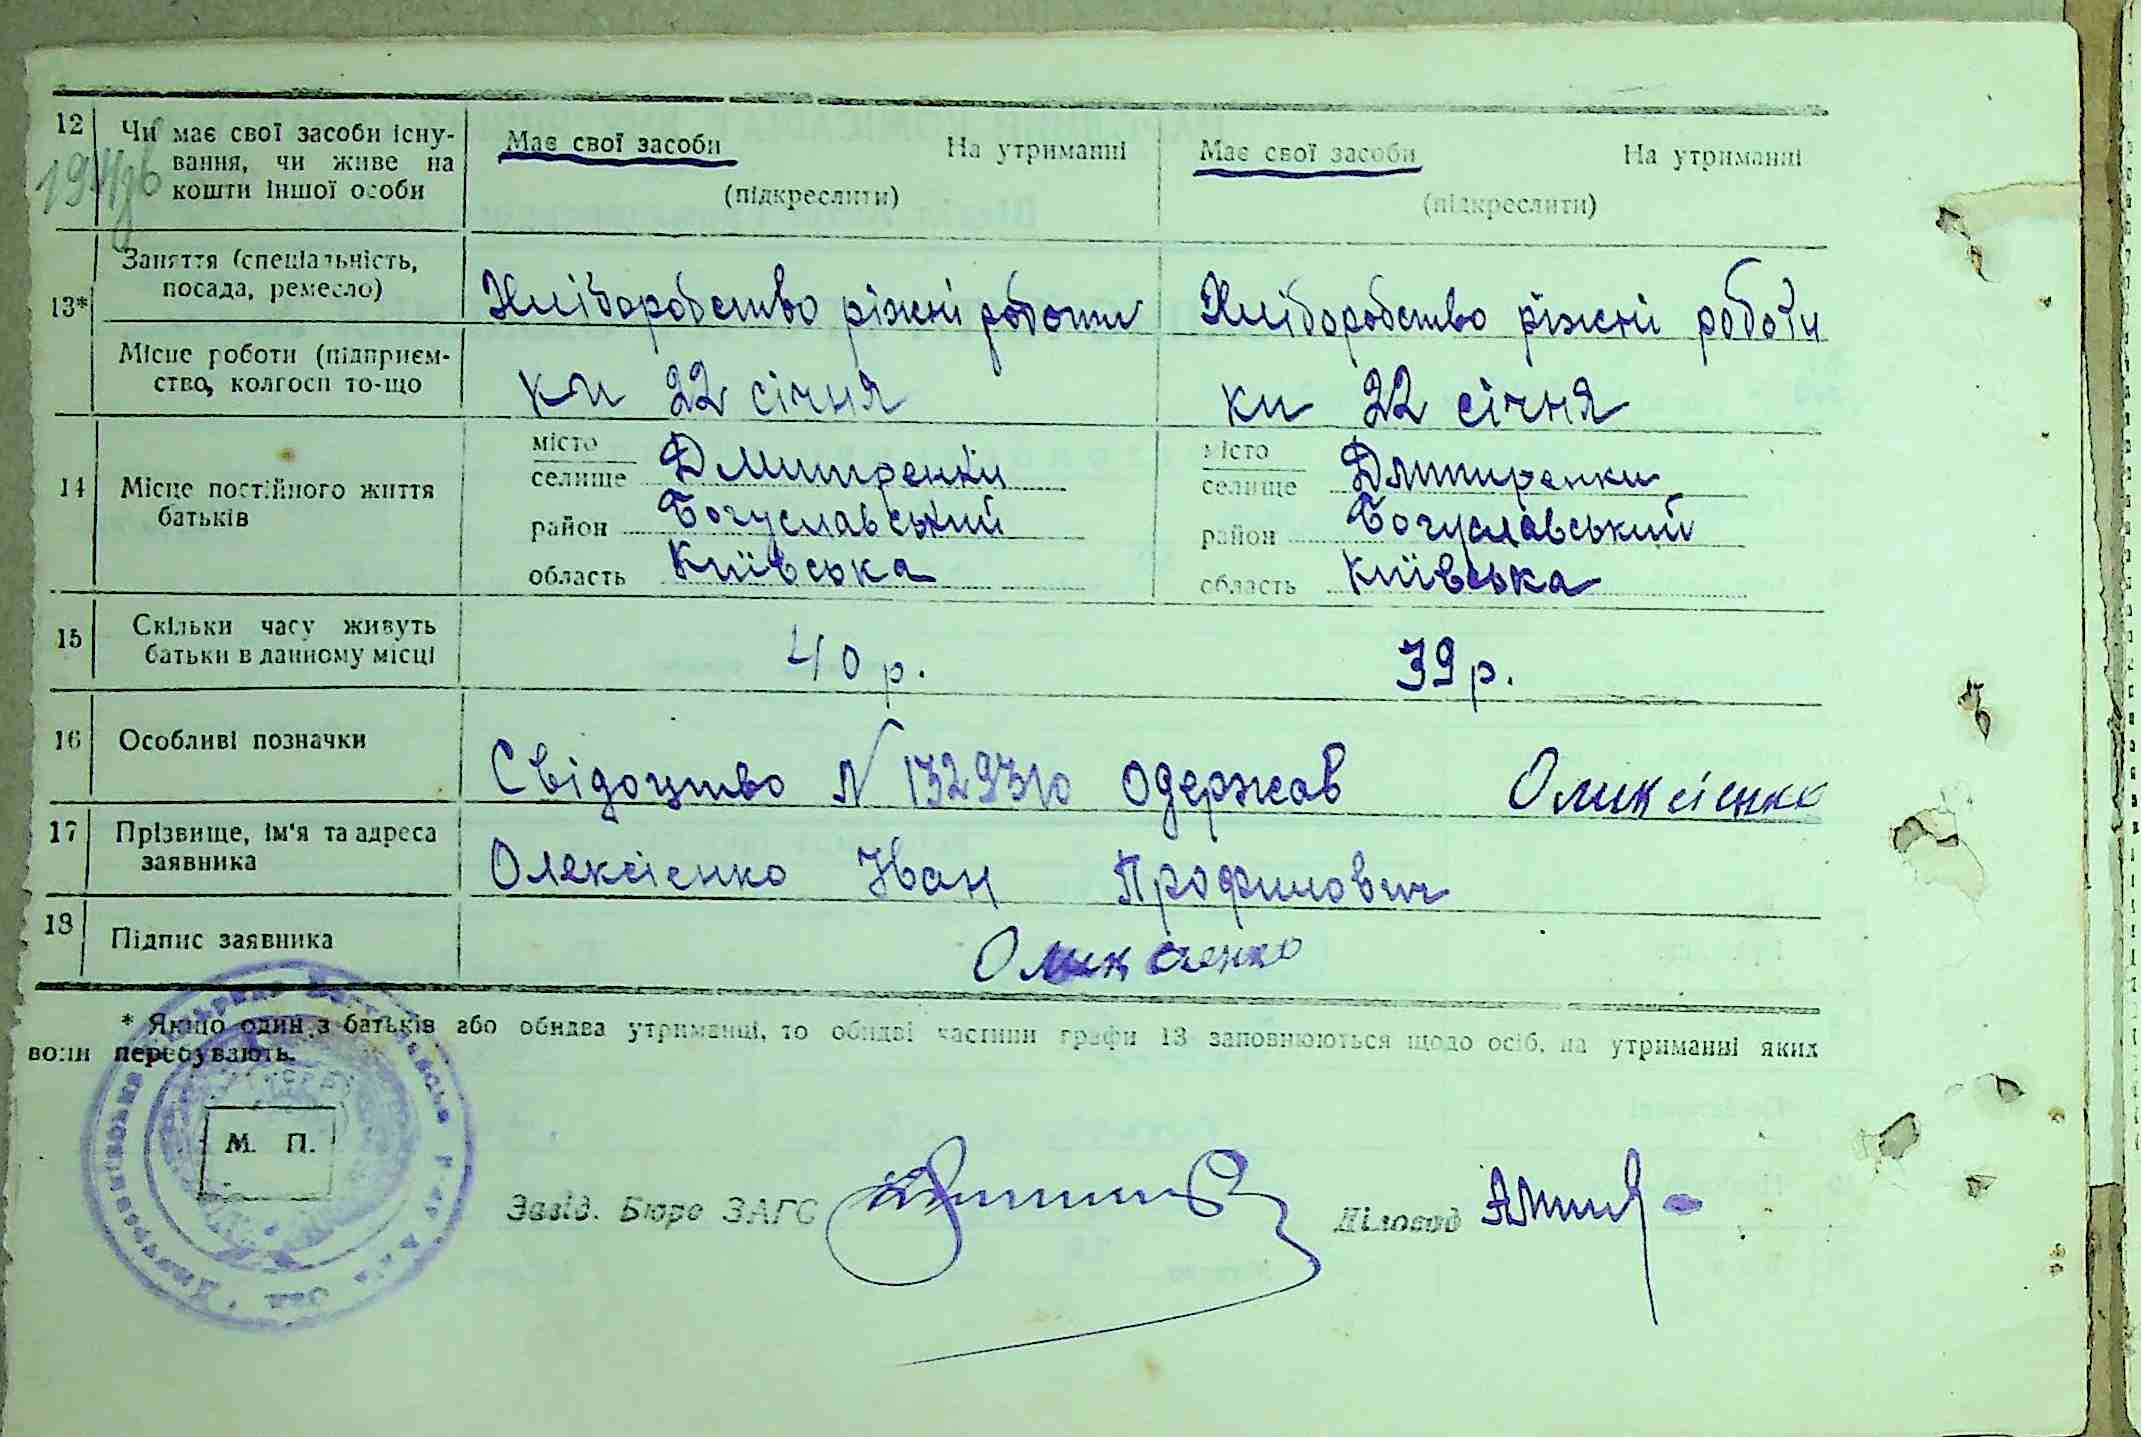 12 Чи має свої засоби існу-
вання, чи живе на
кошти іншої особи
Має свої засоби На утриманні
(підкреслити)
Має свої засоби На утриманні
(підкреслити)
13* Заняття (спеціальність,
посада, ремесло)
Хліборобство ріжні роботи
Хліборобство ріжні роботи
Місце роботи (підприєм-
ство, колгосп то-що
кп 22 січня
кп 22 січня
14 Місце постійного життя
батьків
місто
селище Дмитренки
район Богуславський
область Київська
місто
селище Дмитренки
район Богуславський
область Київська
15 Скільки часу живуть
батьки в данному місці
40 р.
39 р.
16 Особливі позначки
Свідоцтво N одержав Оликсієнко
17 Прізвище, ім'я та адреса
заявника
Олексієнко Іван Профилович
18 Підпис заявника
Оликсієнко
* Якщо один з батьків або обидва утриманці, то обидві частини графи 13 заповнюються щодо осіб, на утриманні яких
вони перебувають.
М. П.
Завід. Бюро ЗАГС
Діловод